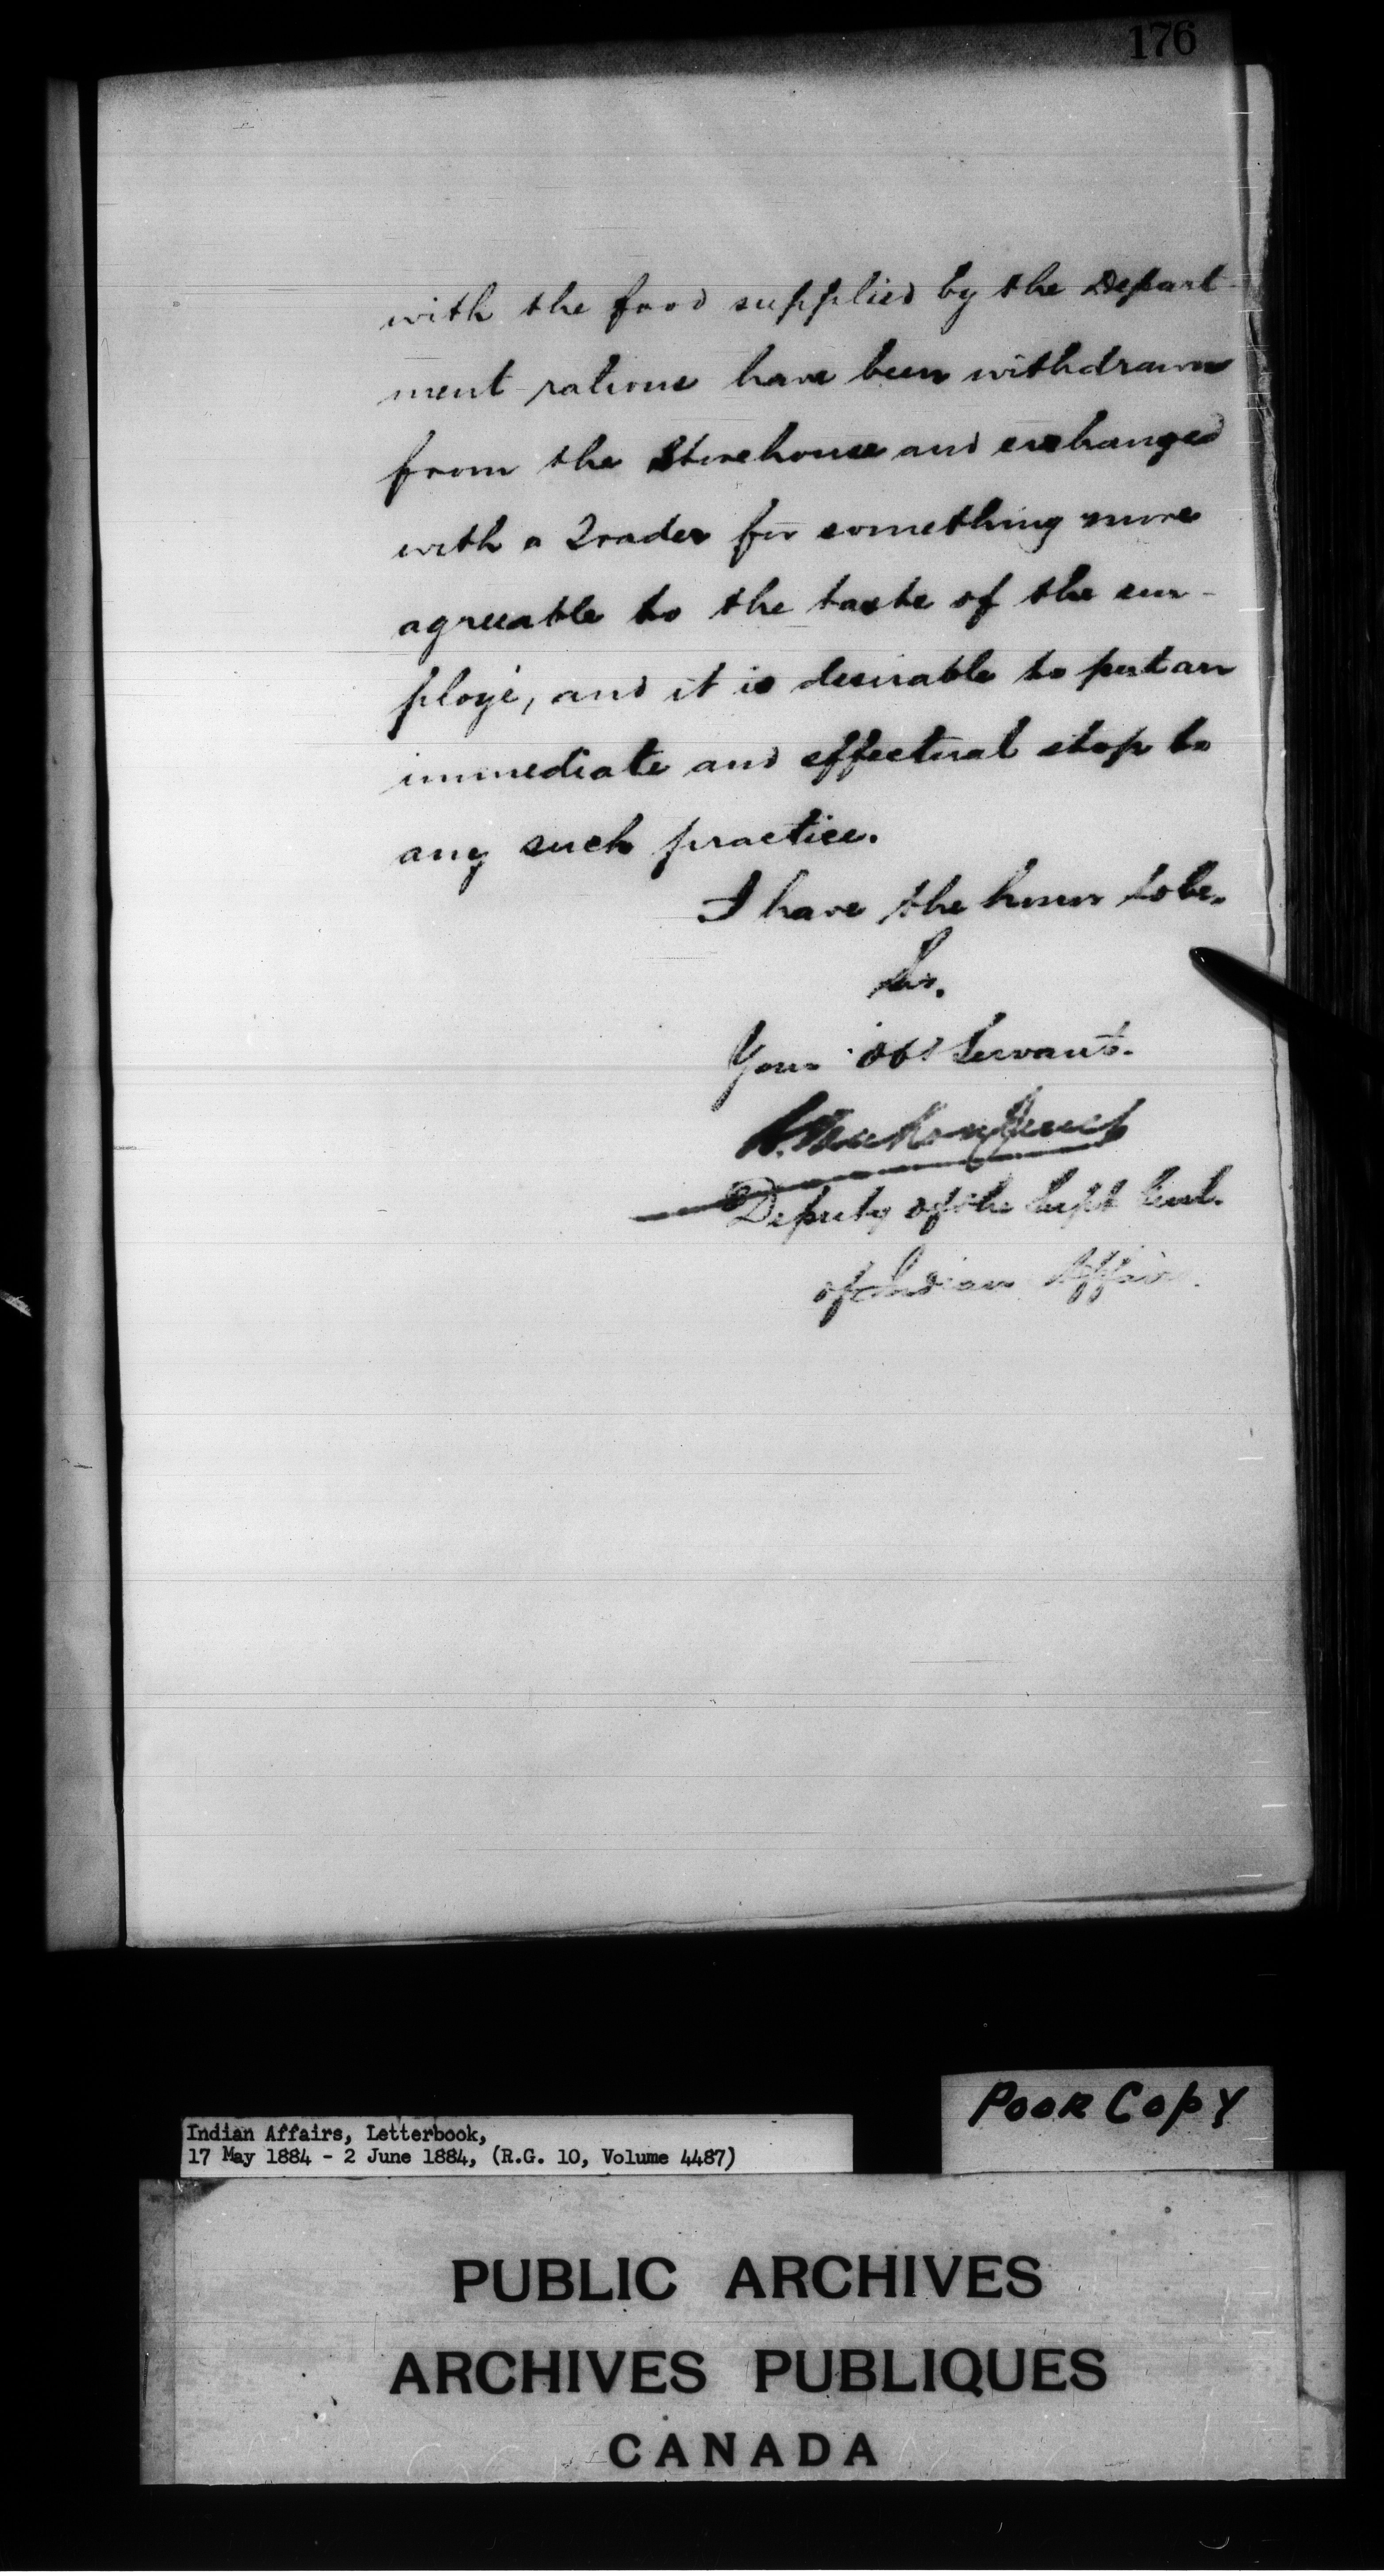 176
with the food supplied by the Depart-
ment rations have been withdrawn
from the Storehouse and exchanged
with a Trader for something more
agreeable to the taste of the em-
ployé, and it is desirable to put an
immediate and effectual stop to
any such practice.
I have the honor to be,
Sir,
Your obt Servant.
L. Vankoughnet
Deputy of the Supt Genl.
of Indian Affairs.
POOR COPY
Indian Affairs, Letterbook,
17 May 1884 - 2 June 1884, (R.G. 10, Volume 4487)
PUBLIC ARCHIVES
ARCHIVES PUBLIQUES
CANADA